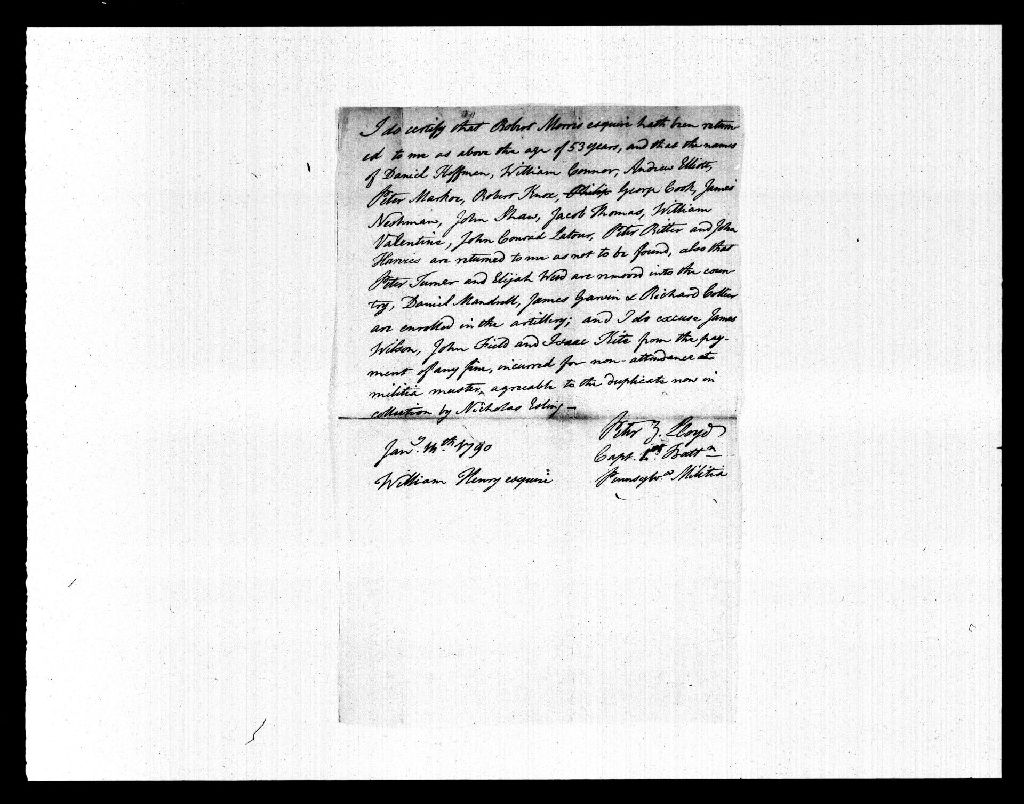 I do certify that Robert Morris esquire hath been return
ed to me as above the age of 53 years, and that the names
of Daniel Hoffman, William Connor, Andrew Elliott,
Peter Markoe, Robert Knox, Philip George Cook, James
Neshman, John Shaw, Jacob Thomas, William
Valentine, John Conrad Latour, Peter Ritter and John
Harvees are returned to me as not to be found, also that
Peter Turner and Elijah Weed are removed into the coun
try, Daniel Mandrell, James Garvin & Richard Collier
are enrolled in the artillery; and I do excuse James
Wilson, John Field and Isaac Kite from the pay-
ment of any fine, incurred for non-attendance at
militia musters agreeable to the duplicate now in
collection by Nicholas Esling —
Peter Z. Lloyd
Jany. 1790
Capt. 1st Battn
William Henry esquire
Pennsylva Militia